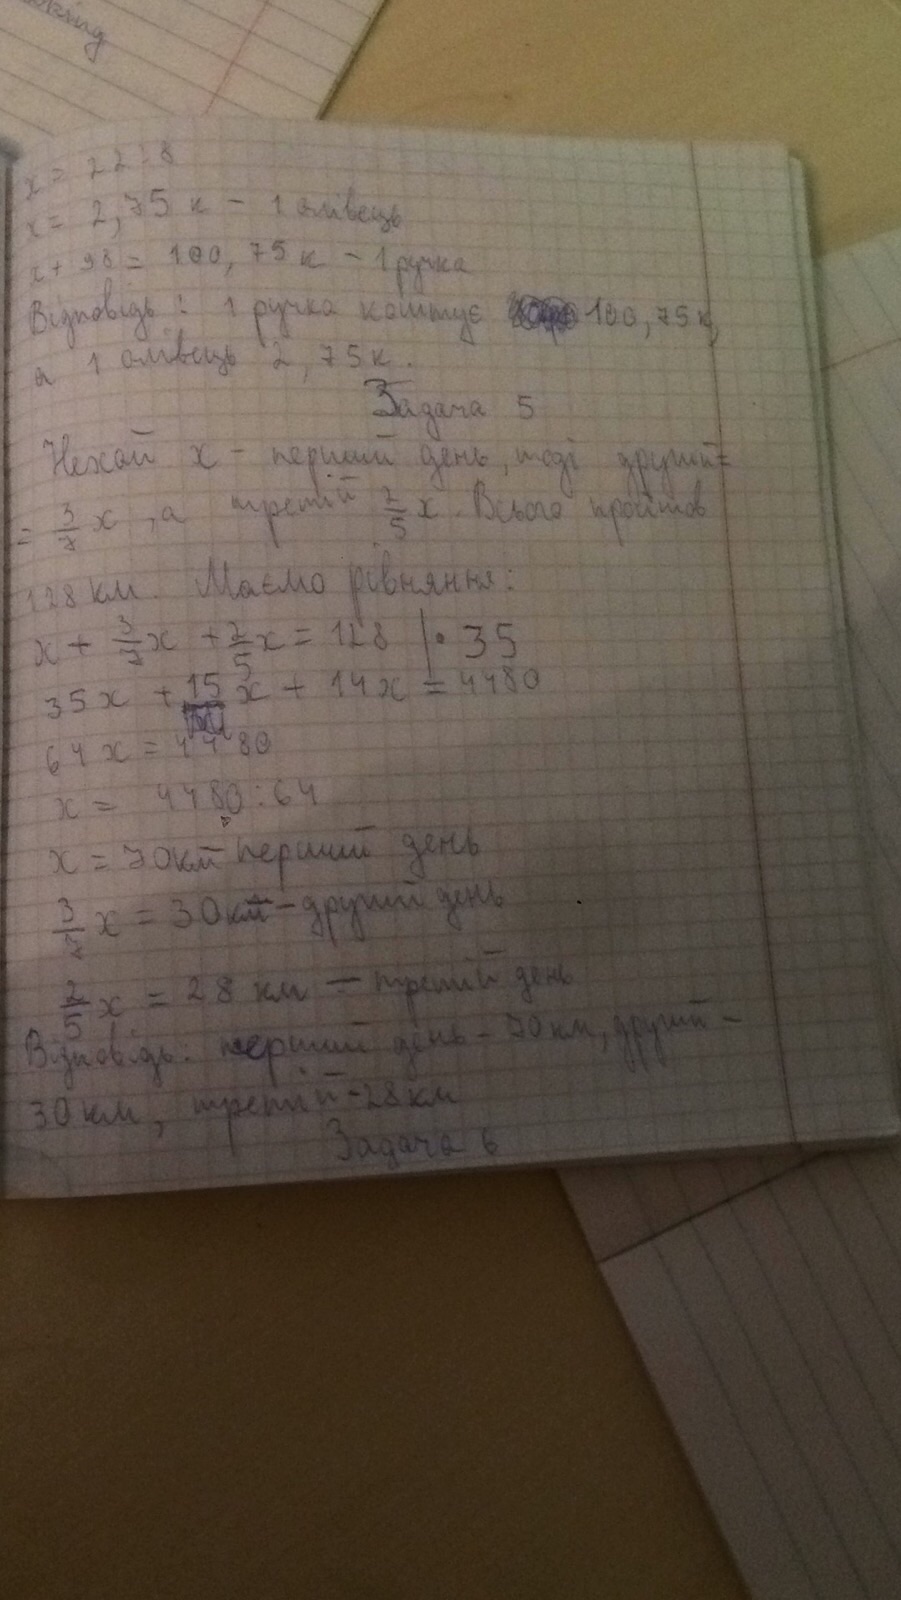 oking
x = 22:8
x = 2,75 к - 1 олівець
x + 98 = 100,75 к - 1 ручка
Відповідь: 1 ручка коштує 100,75 к,
а 1 олівець 2,75 к.
Задача 5
Нехай х - перший день, тоді другий =
= 3/7 х, а третій 2/5 х. Всього пройшов
128 км. Маємо рівняння:
x + 3/7 x + 2/5 x = 128 | · 35
35x + 15x + 14x = 4480
64x = 4480
x = 4480:64
x = 70км перший день
3/7 x = 30км - другий день
2/5 x = 28 км - третій день
Відповідь: перший день - 70 км, другий -
30 км, третій - 28 км
Задача 6